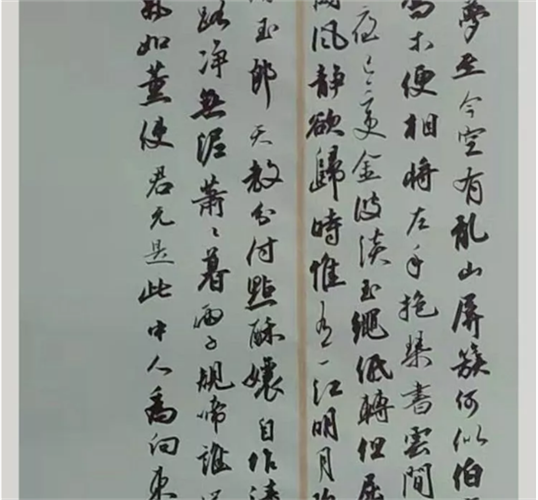 夢至今空有亂山屏簇何似伯
喬木便相將左手抱琴書雲間
夜已三更金波淡玉繩低轉但屈
闌風靜欲歸時惟有一江明月
玉郎天教分付點酥孃自作清
路淨無泥蕭蕭暮雨子規啼誰道
氣如薰使君元是此中人為向東